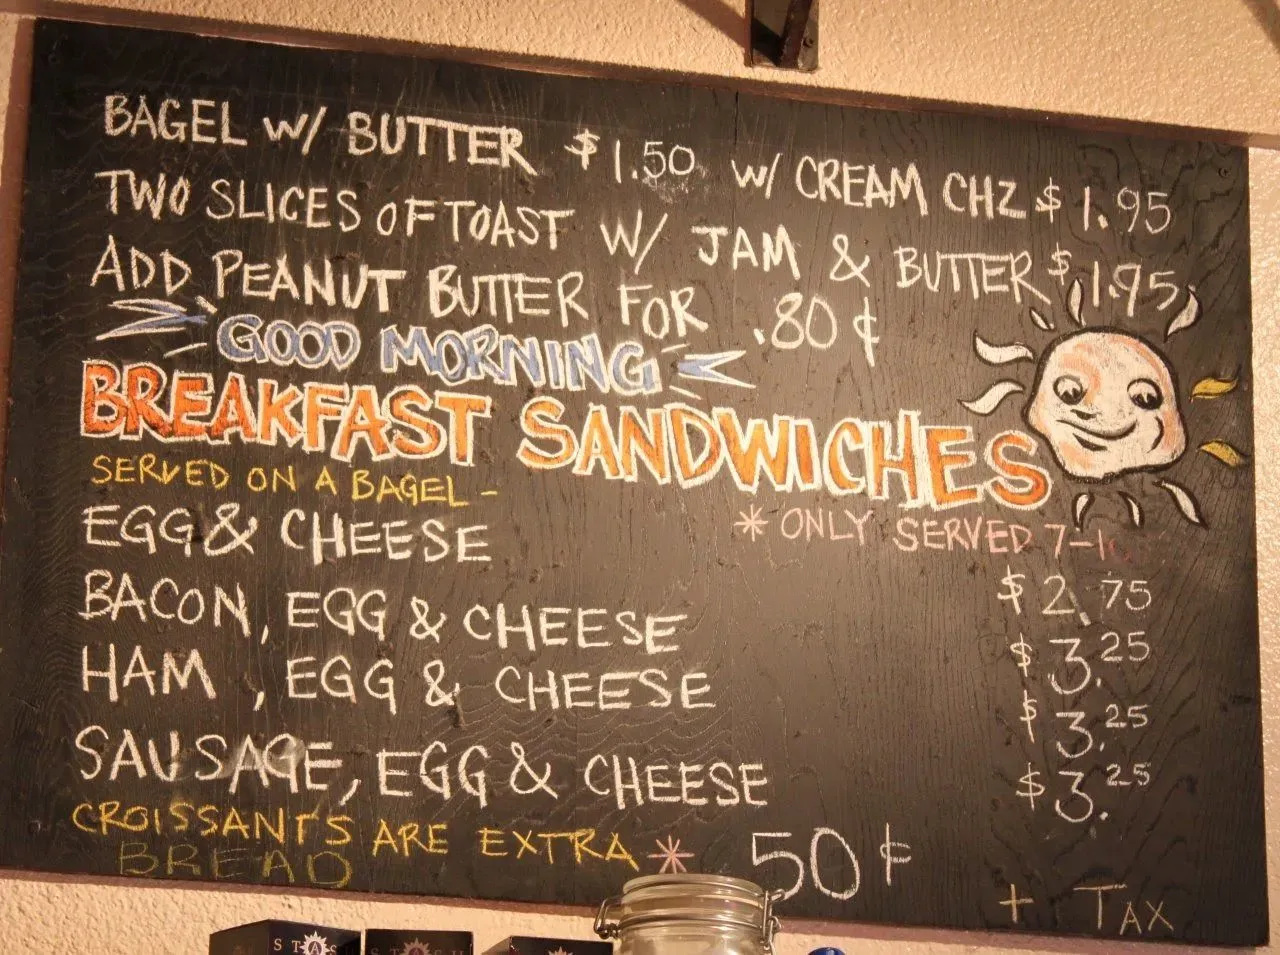 BAGEL W/ BUTTER $1.50 W/ CREAM CHZ $1.95
TWO SLICES OF TOAST W/ JAM & BUTTER $1.95
ADD PEANUT BUTTER FOR .80¢
GOOD MORNING
BREAKFAST SANDWICHES
SERVED ON A BAGEL -
* ONLY SERVED 7-1
EGG & CHEESE $2.75
BACON, EGG & CHEESE $3.25
HAM, EGG & CHEESE $3.25
SAUSAGE, EGG & CHEESE $3.25
CROISSANTS ARE EXTRA * 50¢
BREAD
+ TAX
STASH
STASH